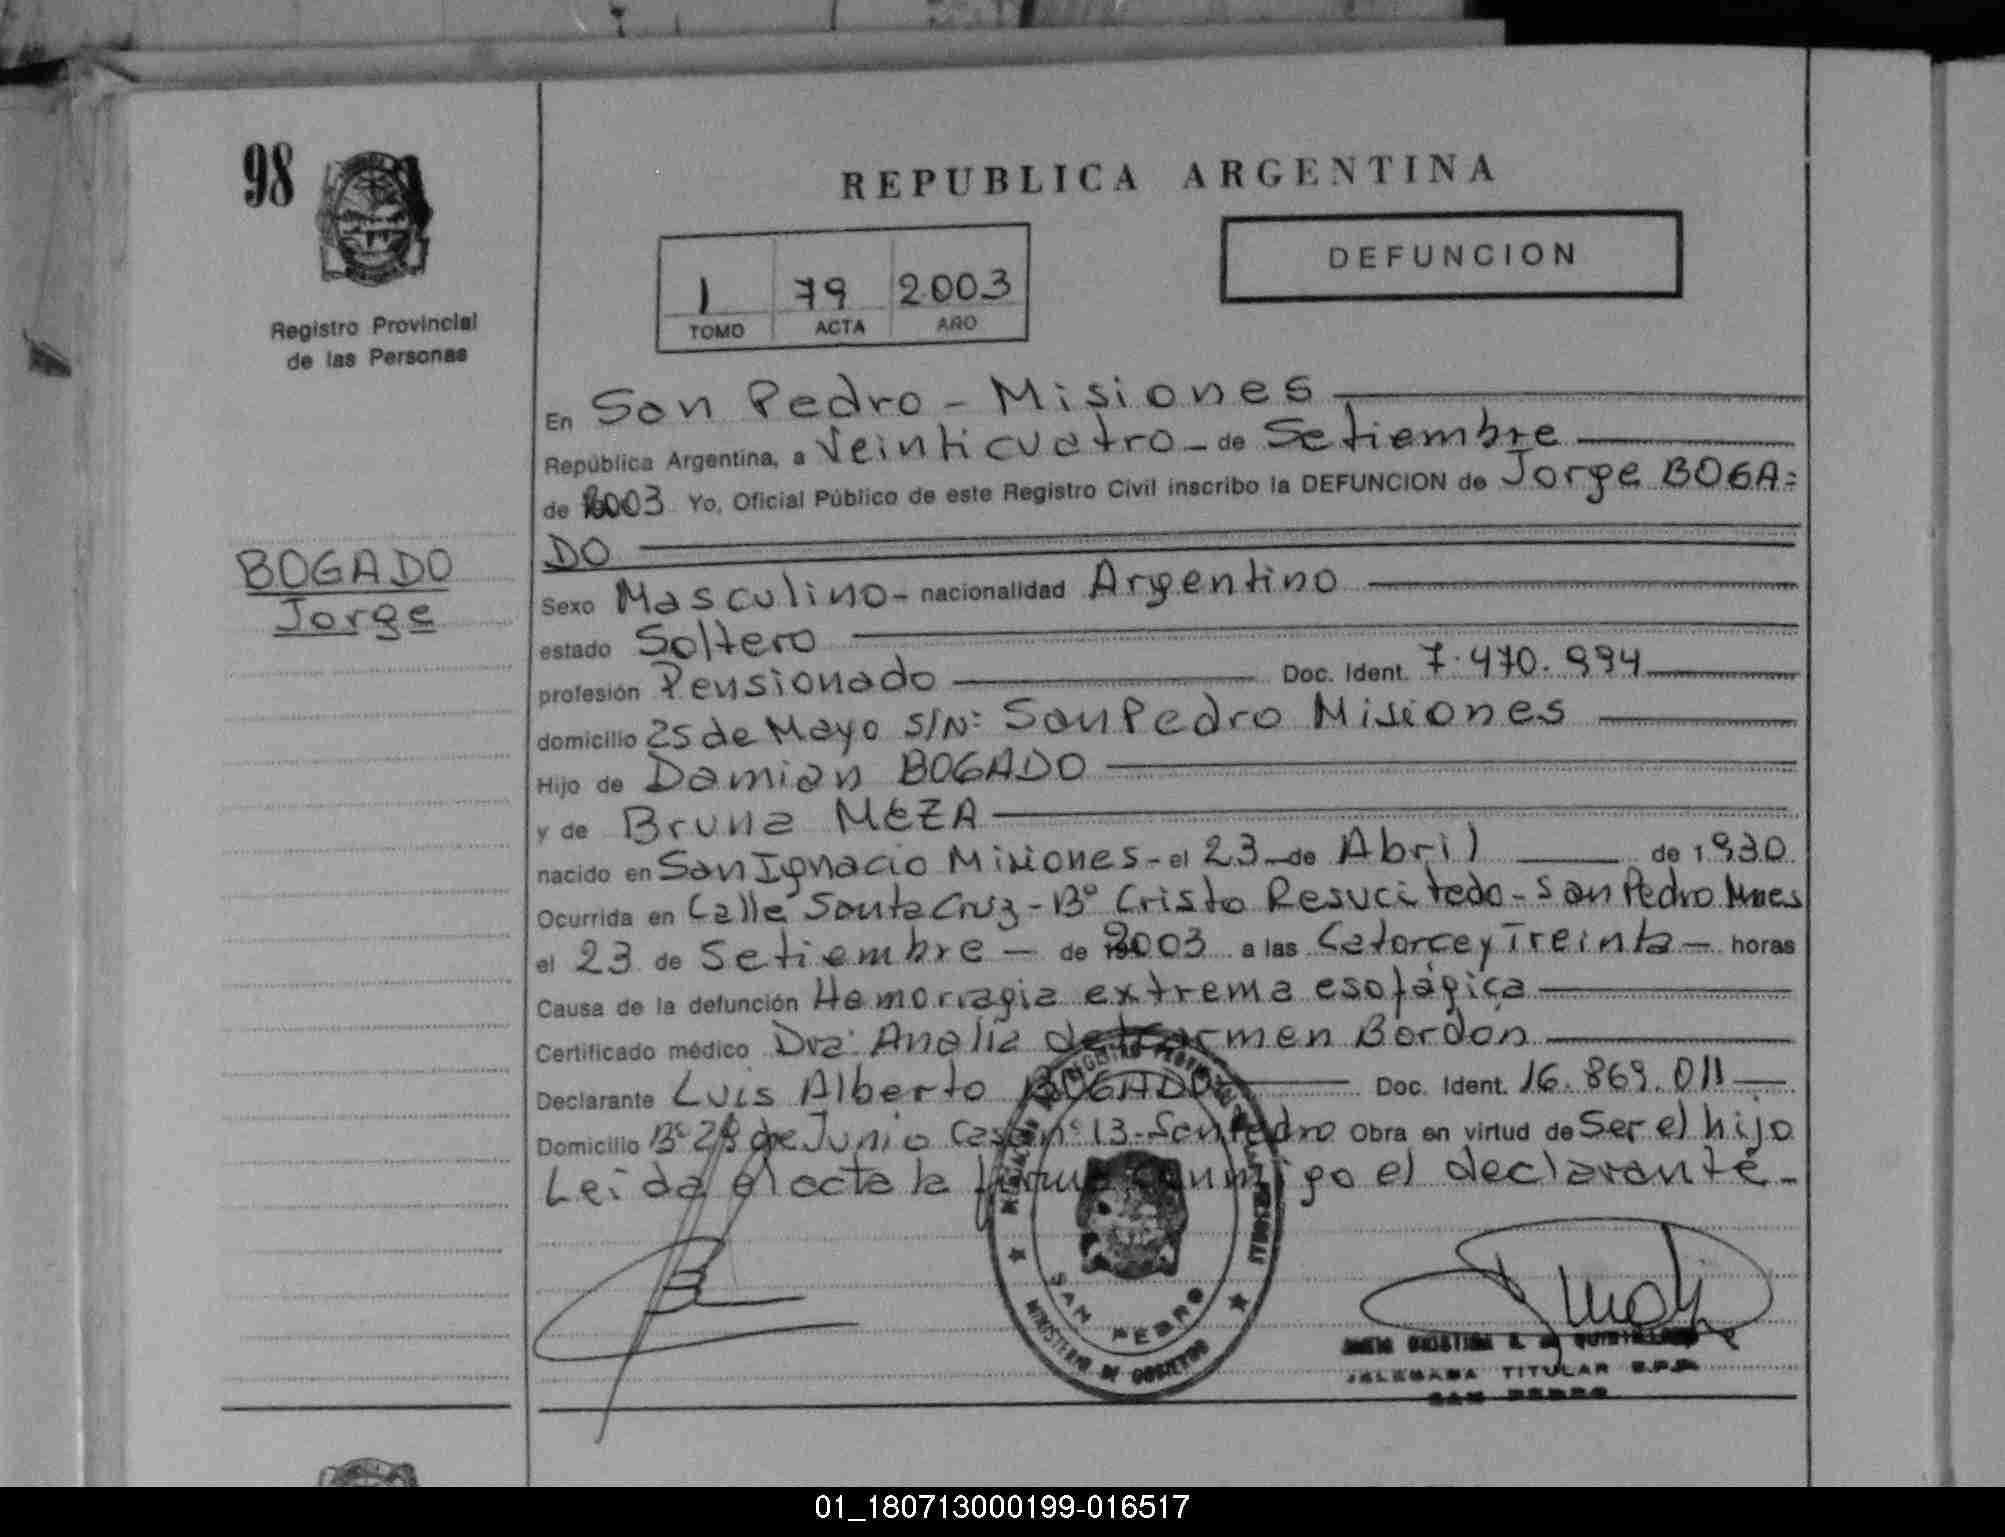 98
REPUBLICA ARGENTINA
1 79 2003
TOMO ACTA AÑO
DEFUNCION
Registro Provincial
de las Personas
BOGADO
Jorge
En San Pedro - Misiones
República Argentina, a Veinticuatro - de Setiembre
de 2003 Yo, Oficial Público de este Registro Civil inscribo la DEFUNCION de Jorge BOGA=
DO
Sexo Masculino - nacionalidad Argentino
estado Soltero
profesión Pensionado Doc. Ident. 7.470.994
domicilio 25 de Mayo S/Nº San Pedro Misiones
Hijo de Damian BOGADO
y de Bruna MEZA
nacido en San Ignacio Misiones - el 23 - de Abril de 1.930
Ocurrida en Calle Santa Cruz - Bº Cristo Resucitado - San Pedro Mnes
el 23 de Setiembre - de 2003 a las Catorce y Treinta - horas
Causa de la defunción Hemorragia extrema esofágica
Certificado médico Dra. Analía del Carmen Bordón
Declarante Luis Alberto BOGADO Doc. Ident. 16.869.011
Domicilio Bº 28 de Junio Casa nº 13 - San Pedro Obra en virtud de Ser el hijo
Leida el acta la firma conmigo el declarante -
SAN PEDRO
MINISTERIO DE GOBIERNO
TITULAR
SAN PEDRO
01_180713000199-016517